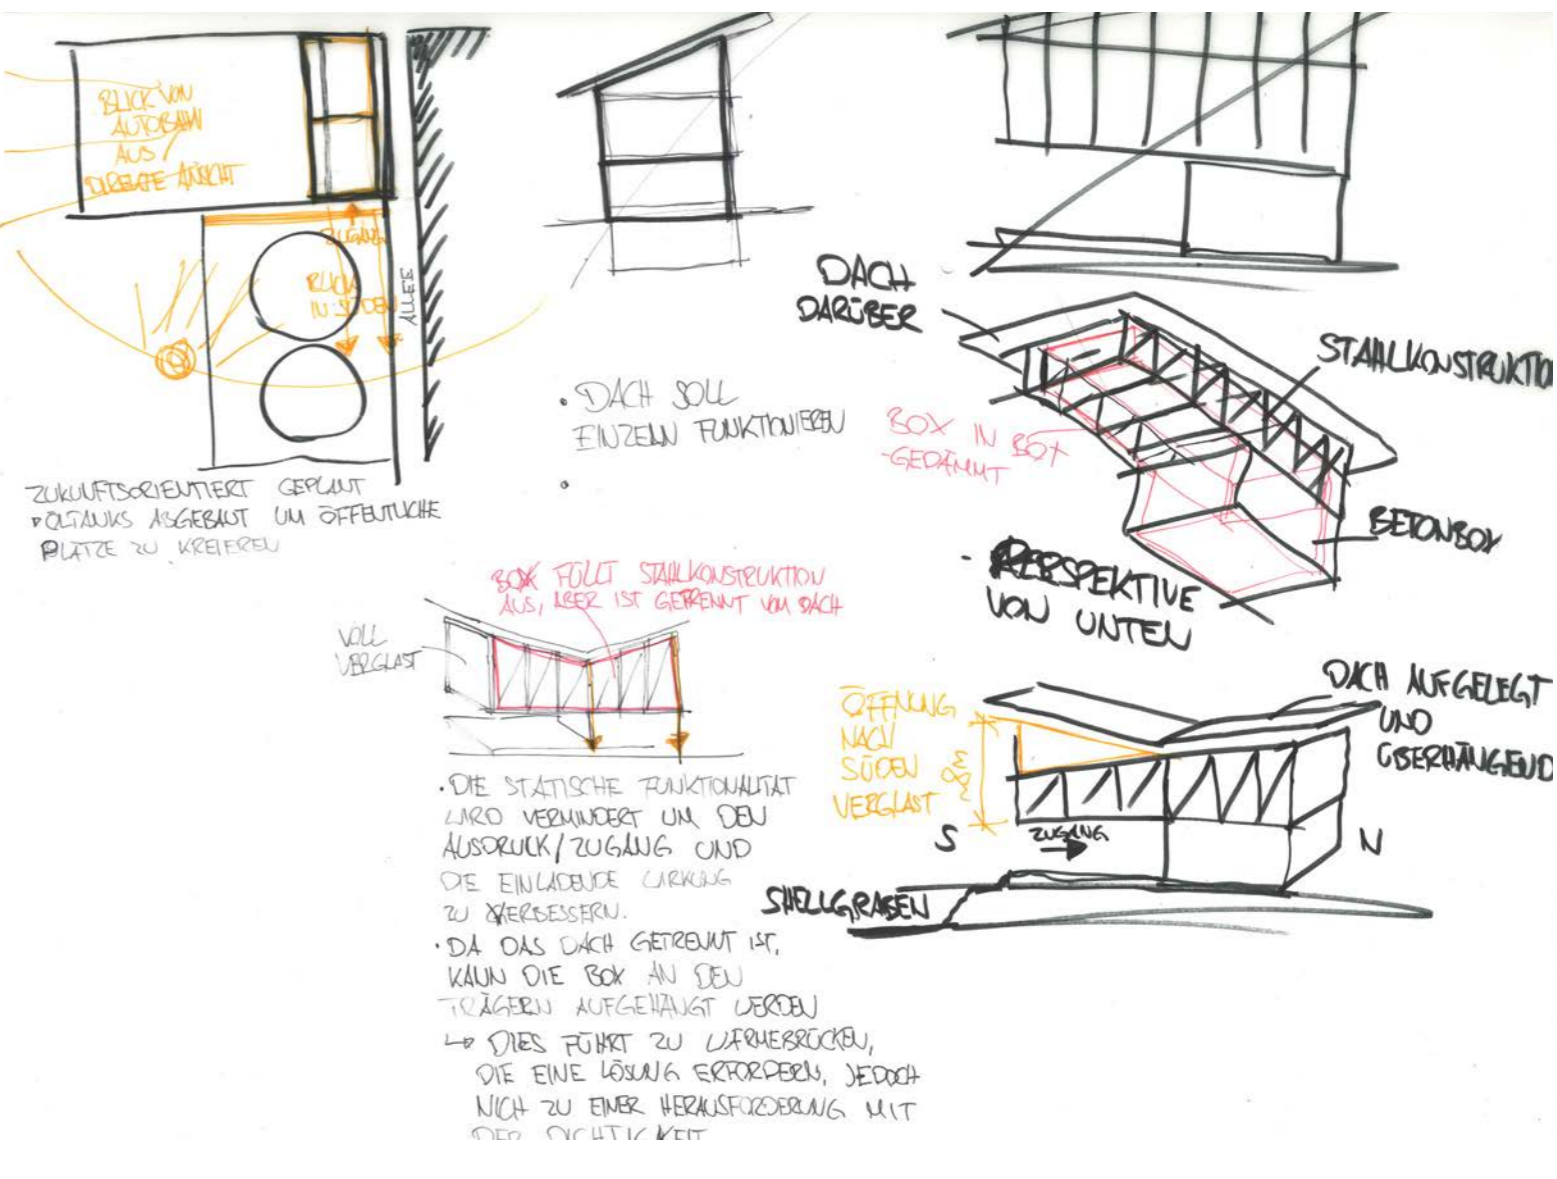 BLICK VON
AUTOBAHN
AUS /
DIREKTE ANSICHT
ZUGANG
BLICK
IN SÜDEN
ALLEE
ZUKUNFTSORIENTIERT GEPLANT
ÖLTANKS ABGEBAUT UM ÖFFENTLICHE
PLÄTZE ZU KREIEREN
• DACH SOLL
EINZELN FUNKTIONIEREN
•
DACH
DARÜBER
STAHLKONSTRUKTIO
BOX IN BOX
-GEDÄMMT
BETONBOX
- PERSPEKTIVE
VON UNTEN
BOX FÜLLT STAHLKONSTRUKTION
AUS, ABER IST GETRENNT VOM DACH
VOLL
VERGLAST
• DIE STATISCHE FUNKTIONALITÄT
WIRD VERMINDERT UM DEN
AUSDRUCK/ZUGANG UND
DIE EINLADENDE WIRKUNG
ZU VERBESSERN.
• DA DAS DACH GETRENNT IST,
KANN DIE BOX AN DEN
TRÄGERN AUFGEHÄNGT WERDEN
↳ DIES FÜHRT ZU WÄRMEBRÜCKEN,
DIE EINE LÖSUNG ERFORDERN, JEDOCH
NICH ZU EINER HERAUSFORDERUNG MIT
DER DICHTIGKEIT
ÖFFNUNG
NACH
SÜDEN
VERGLAST
~8m
DACH AUFGELEGT
UND
ÜBERHÄNGEND
S
ZUGANG
N
SHELLGRABEN